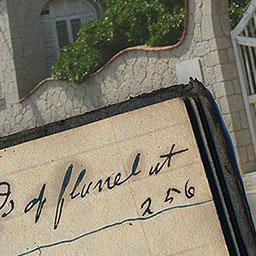 ds of flannel at
256